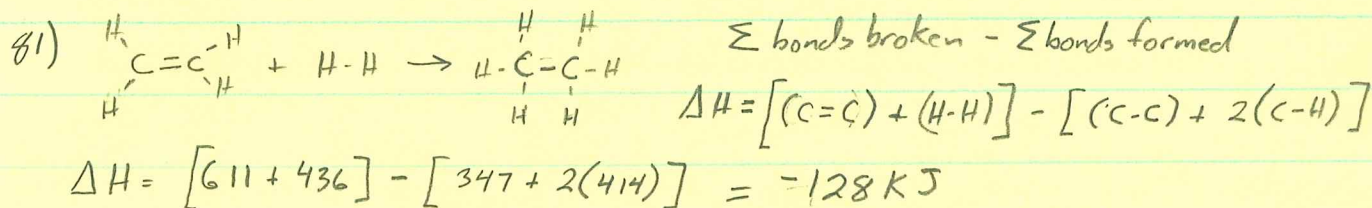 81) H H C=C H H + H-H → H H H-C-C-H H H Σ bonds broken - Σ bonds formed
ΔH = [(C=C) + (H-H)] - [(C-C) + 2(C-H)]
ΔH = [611 + 436] - [347 + 2(414)] = -128 KJ